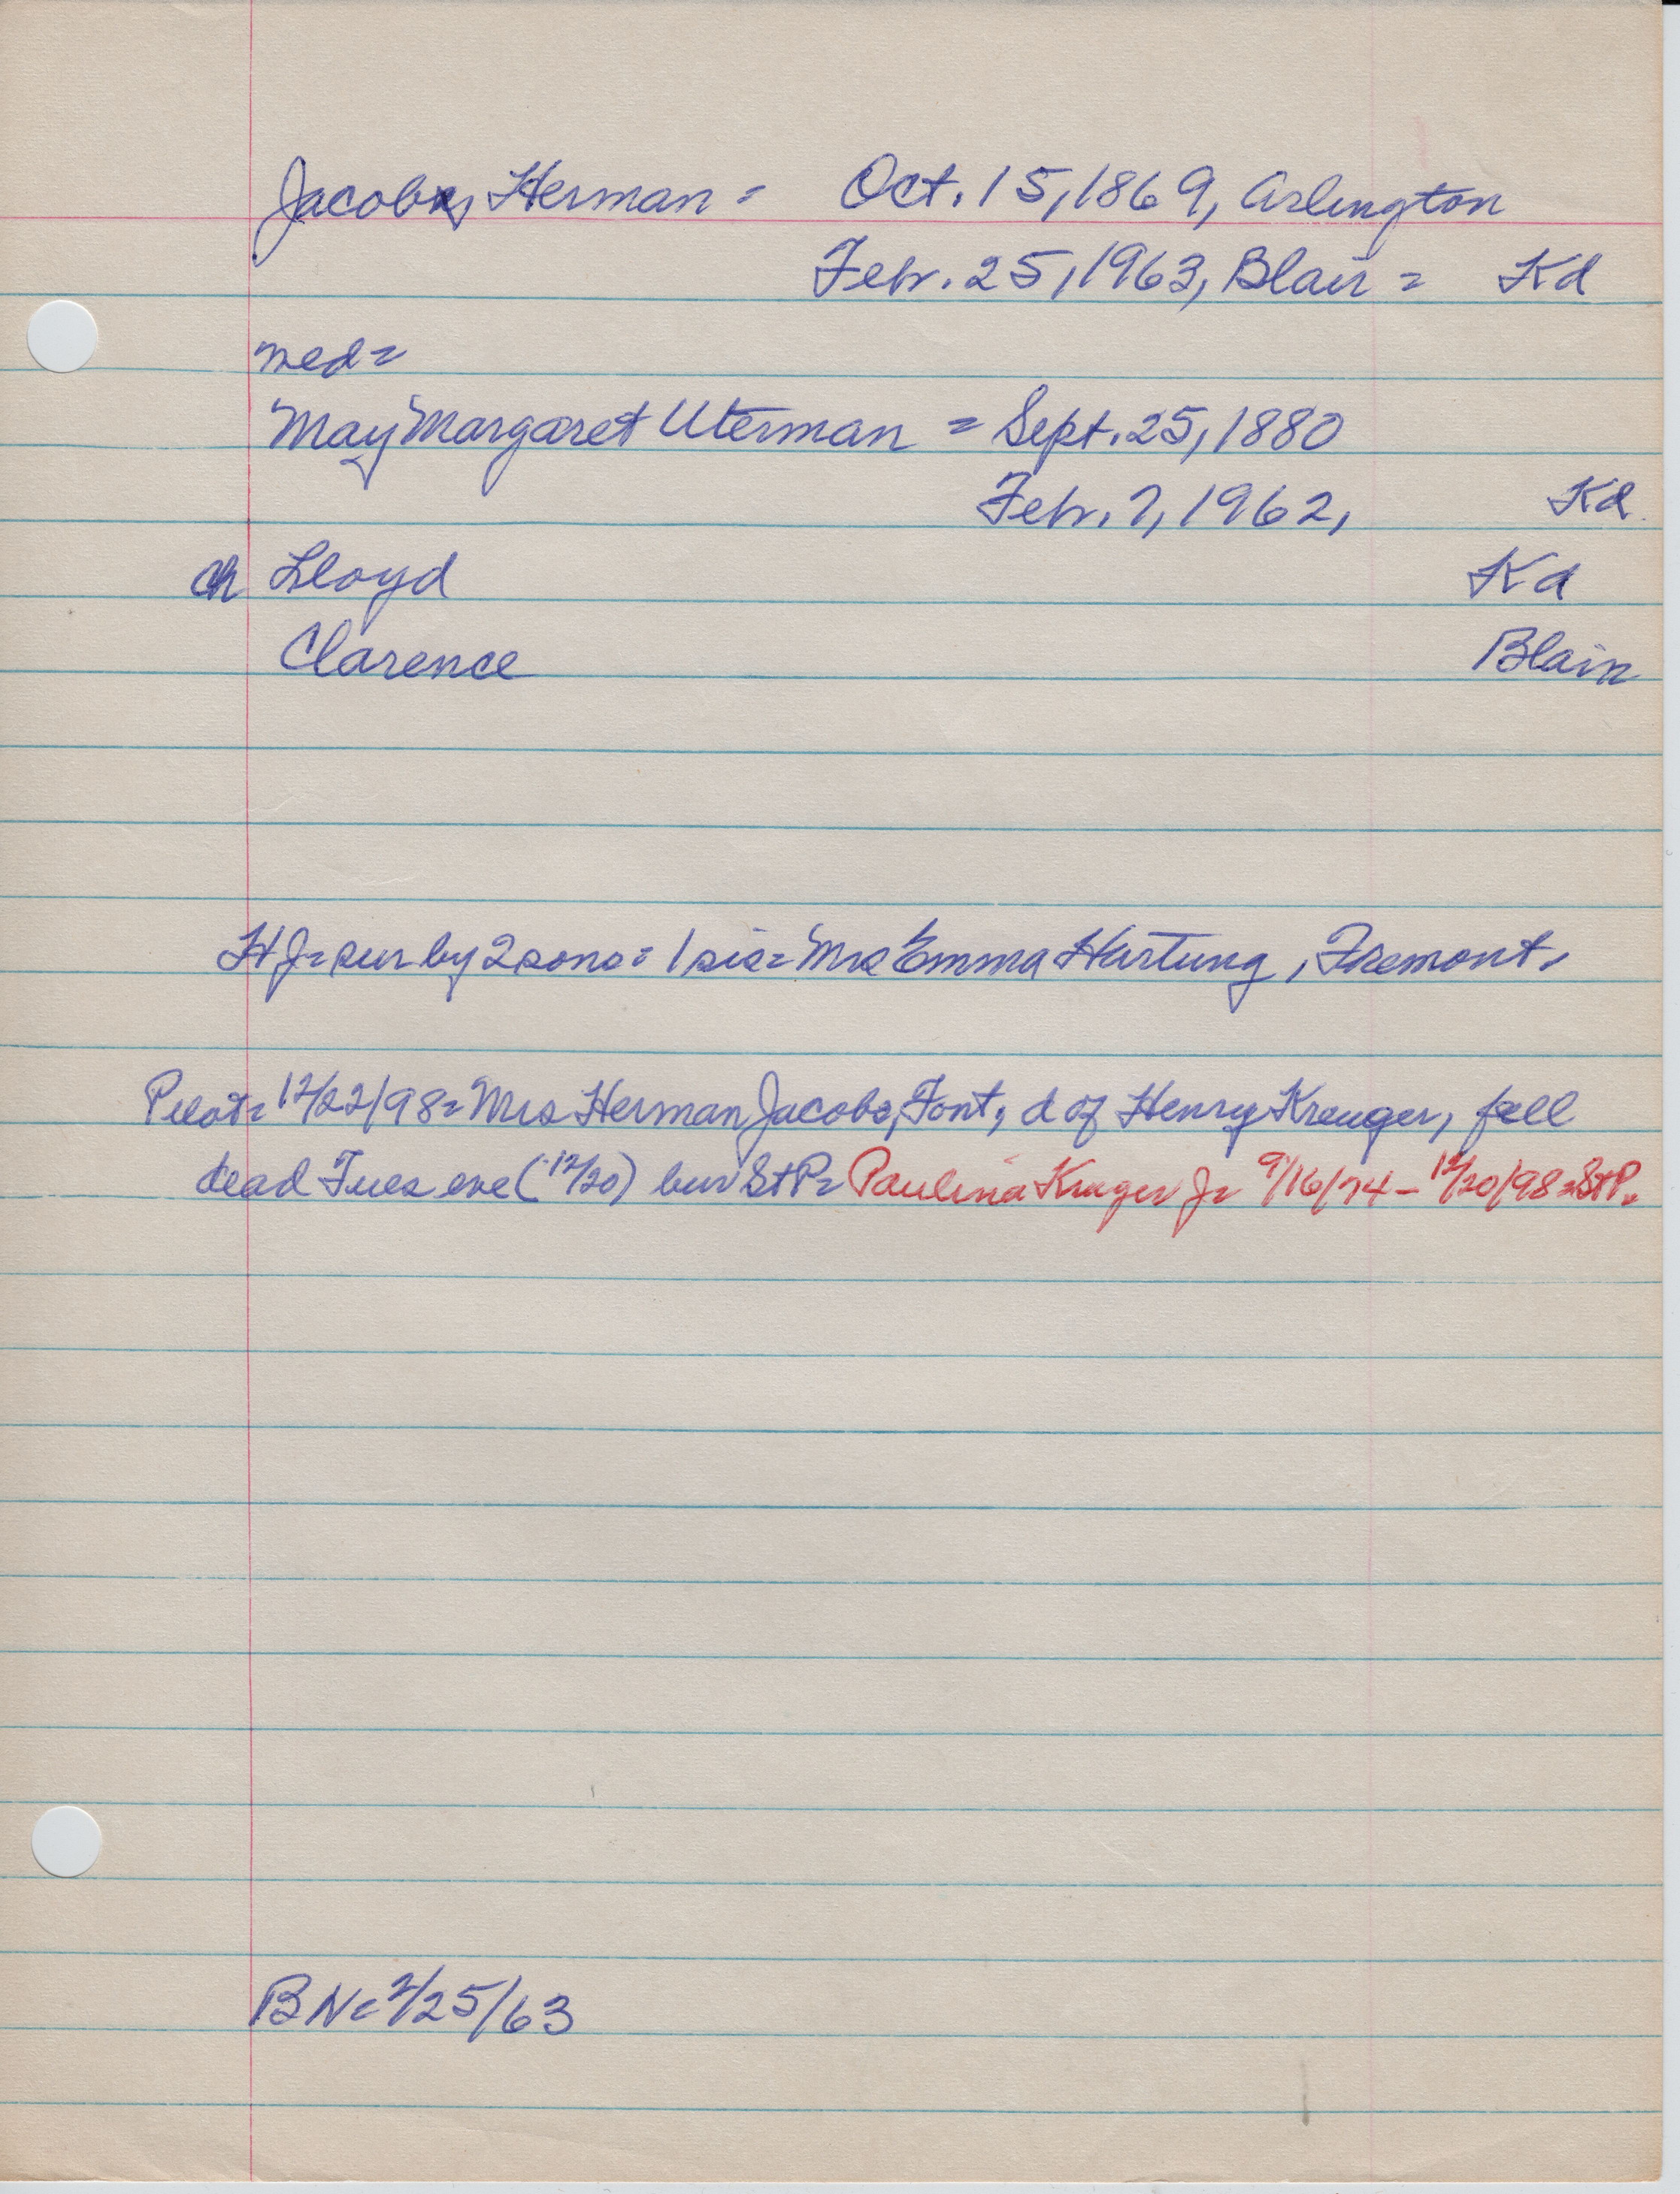 Jacobs, Herman = Oct. 15, 1869, Arlington
Febr. 25, 1963, Blair = Kd
med =
May Margaret Uterman = Sept. 25, 1880
Febr. 7, 1962, Kd
ch Lloyd Kd
Clarence Blair
HJ = sur by 2 sons = 1 sis = Mrs Emma Hartung, Fremont.
Pilot = 12/22/98 = Mrs Herman Jacobs, Font, d of Henry Kreuger, fell
dead Tues eve (12/20) bur St P = Paulina Kruger J = 9/16/74 - 12/20/98 = St P.
BN = 2/25/63